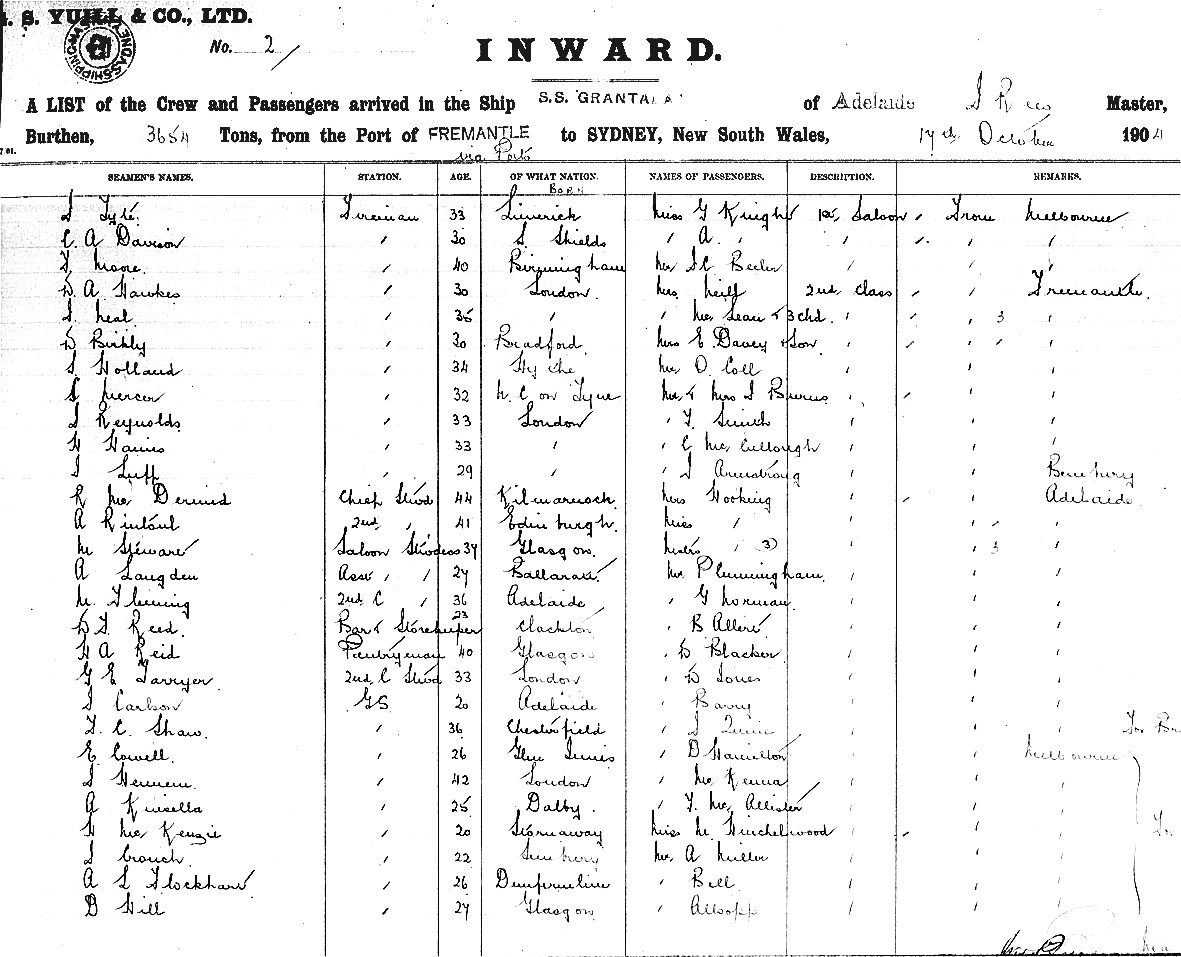 S. YUILL & CO., LTD.
No. 2
INWARD.
A LIST of the Crew and Passengers arrived in the Ship S.S. GRANTALA of Adelaide J Rees Master,
Burthen, 3654 Tons, from the Port of FREMANTLE to SYDNEY, New South Wales, 17th October 1904
via Ports
SEAMEN'S NAMES. STATION. AGE. OF WHAT NATION. NAMES OF PASSENGERS. DESCRIPTION. REMARKS.
Born
Fireman 33 Limerick Miss G Knight 1st Saloon From Melbourne
C. A Davison " 30 S. Shields " A. " " " "
Moore. " 40 Birmingham Mr " " "
D. A Hawkes " 30 London. Mrs 2nd Class " " Fremantle.
Neal " 35 " " & 3 chd. " " " 3 "
" 30 Bradford. Mrs E Davey & Son " " " " "
Holland " 34 Hythe Mr O. Coll " " "
Mercer " 32 N. C on Tyne Mr & Mrs J Burns " " " "
J Reynolds " 33 London " F. Smith " " "
H Harris " 33 " " C McCullough " " "
J Luff " 29 " " J Armstrong " " Bunbury
R McDermid Chief Stwd 44 Kilmarnock Mrs Hocking " " " Adelaide
A Rintoul 2nd " 41 Edinburgh. Miss " " " " "
M Stewart Saloon Stwdess 39 Glasgow. " 3 " " 3 "
A Langden Asst " " 27 Ballarat. Mr Plummingham. " " "
M. Fleming 2nd C " 36 Adelaide " G Norman " " "
D F Reed. Bar & Storekeeper 23 Clackton " B Allert " " "
H A Reid Pantryman 40 Glasgow " D Blacker " " "
G E Tarryer 2nd C Stwd 33 London " D Jones " " "
J Carlson GS 20 Adelaide " Barry " " "
F. C. Shaw. " 36 Chesterfield " J Quinn " " "
E Cowell. " 26 Glen Innis " D Hamilton " " Melbourne
" 42 London " McKenna " " "
A Kinsella " 25 Dalby. " F. McAllister " " "
H McKenzie " 20 Stornaway Miss M. Hinchelwood " " " "
J Crouch " 22 Sunbury Mr A Miller " " "
A L Flockhart " 26 Dunfermline " Bell " " "
D Hill " 27 Glasgow " Allsopp " " "